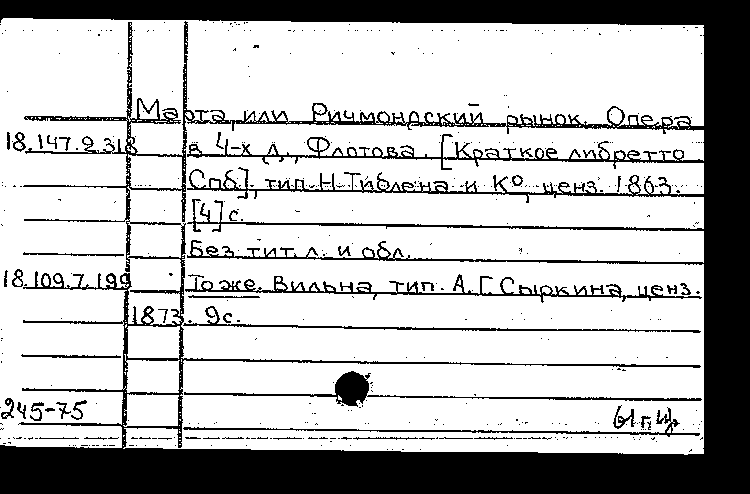 Марта, или Ричмондский рынок. Опера
18.147.2.318 в 4-х д., Флотова. [Краткое либретто
Спб], тип. Н. Тиблена и К°, ценз. 1863.
[4] с.
Без тит. л. и обл.
18.109.7.199 То же. Вильна, тип. А. Г. Сыркина, ценз.
1873. 9с.
245-75